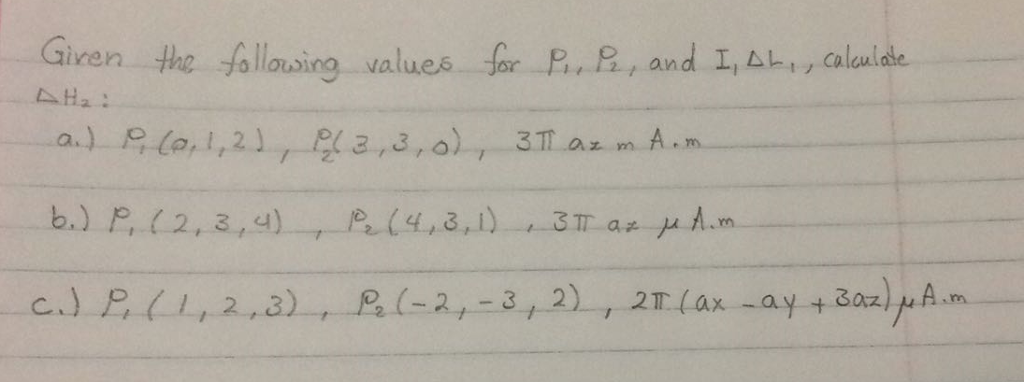 Given the following values for P₁, P₂, and I₁ΔL₁, calculate
ΔH₂:
a.) P₁(0,1,2), P₂(3,3,0), 3π az m A.m
b.) P₁(2,3,4), P₂(4,3,1), 3π az μ A.m
c.) P₁(1,2,3), P₂(-2,-3,2), 2π(ax - ay + 3az) μ A.m